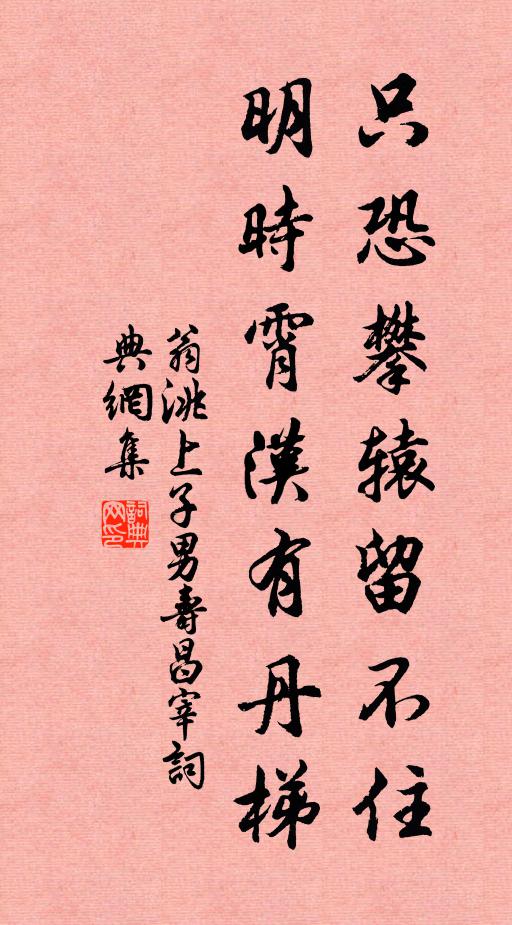 只恐攀辕留不住
明時霄漢有丹梯
翁洮上子男壽昌宰詞
典網集
詞典
网印